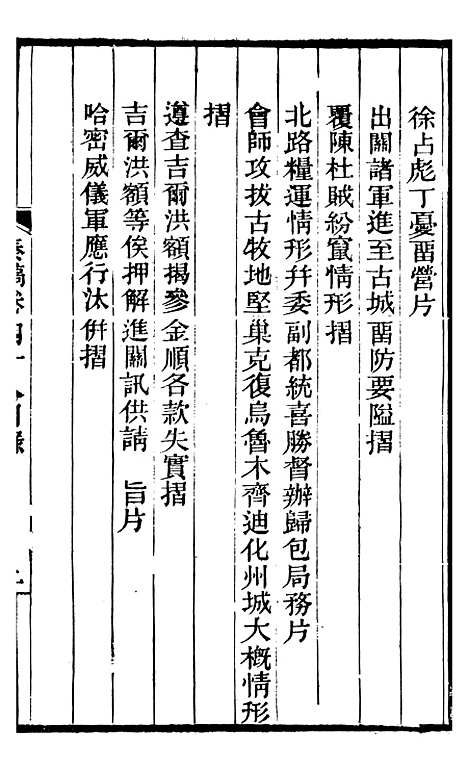 徐占彪丁憂畱營片
出關諸軍進至古城畱防要隘摺
覆陳杜賊紛竄情形摺
北路糧運情形幷委副都統喜勝督辦歸包局務片
會師攻拔古牧地堅巢克復烏魯木齊迪化州城大概情形
摺
遵查吉爾洪額揭參金順各款失實摺
吉爾洪額等俟押解進關訊供請 旨片
哈密威儀軍應行汰倂摺
奏稿卷四十 目錄